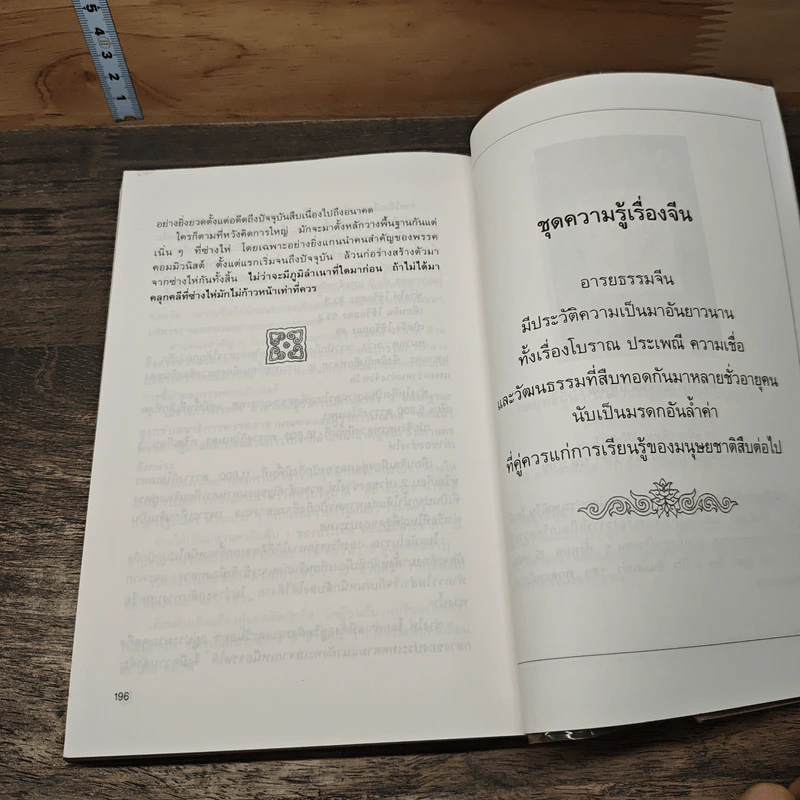 5
4
3
2
1
อย่างยิ่งยวดตั้งแต่อดีตถึงปัจจุบันสืบเนื่องไปถึงอนาคต
ใครก็ตามที่หวังคิดการใหญ่ มักจะมาตั้งหลักวางพื้นฐานกันแต่
เนิ่น ๆ ที่ซ่างไห่ โดยเฉพาะอย่างยิ่งแกนนำคนสำคัญของพรรค
คอมมิวนิสต์ ตั้งแต่แรกเริ่มจนถึงปัจจุบัน ล้วนก่อร่างสร้างตัวมา
จากซ่างไห่กันทั้งสิ้น ไม่ว่าจะมีภูมิลำเนาที่ใดมาก่อน ถ้าไม่ได้มา
คลุกคลีที่ซ่างไห่มักไม่ก้าวหน้าเท่าที่ควร
196
ชุดความรู้เรื่องจีน
อารยธรรมจีน
มีประวัติความเป็นมาอันยาวนาน
ทั้งเรื่องโบราณ ประเพณี ความเชื่อ
และวัฒนธรรมที่สืบทอดกันมาหลายชั่วอายุคน
นับเป็นมรดกอันล้ำค่า
ที่คู่ควรแก่การเรียนรู้ของมนุษยชาติสืบต่อไป